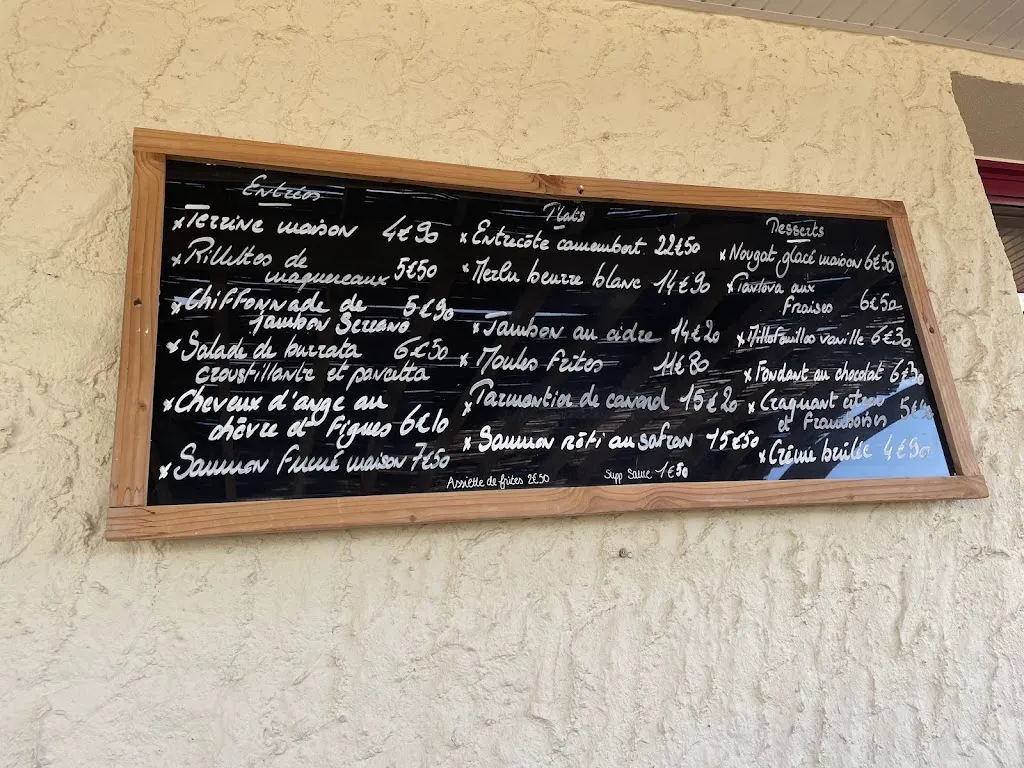 Entrées
x Terrine maison 4€90
x Rillettes de
maquereaux 5€50
x Chiffonnade de 5€90
jambon Serrano
x Salade de burrata 6€50
croustillante et pancetta
x Cheveux d'ange au
chèvre et figues 6€10
x Saumon fumé maison 7€50
Plats
x Entrecôte camembert 22€50
x Merlu beurre blanc 14€90
x Jambon au cidre 14€20
x Moules frites 11€80
x Parmentier de canard 15€20
x Saumon rôti au safran 15€50
Assiette de frites 2€50
Supp Sauce 1€50
Desserts
x Nougat glacé maison 6€50
x Pavlova aux
fraises 6€50
x Millefeuilles vanille 6€30
x Fondant au chocolat 6€30
x Craquant citron
et framboises
x Crème brulée 4€90